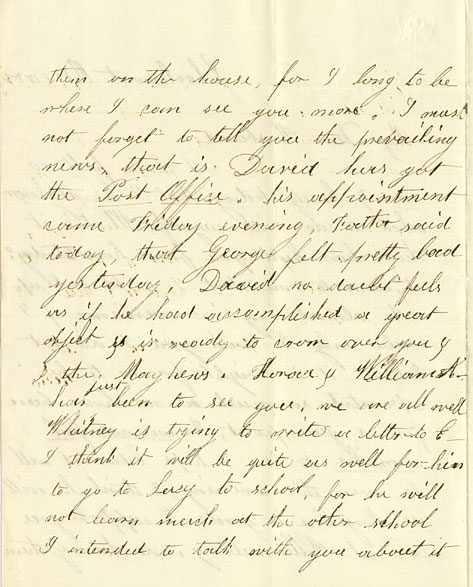 them on the house, for I long to be
where I can see you more. I must
not forget to tell you the prevailing
news, that is David has got
the Post Office. his appointment
came Friday evening, Father said
today, that George felt pretty bad
yesterday, David no doubt feels
as if he had accomplished a great
object & is ready to crow over you &
the Mayhews. Horace & William
has just been to see you, we are all well
Whitney is trying to write a letter to E-
I think it will be quite as well for him
to go to Lucy to school, for he will
not learn much at the other school
I intended to talk with you about it